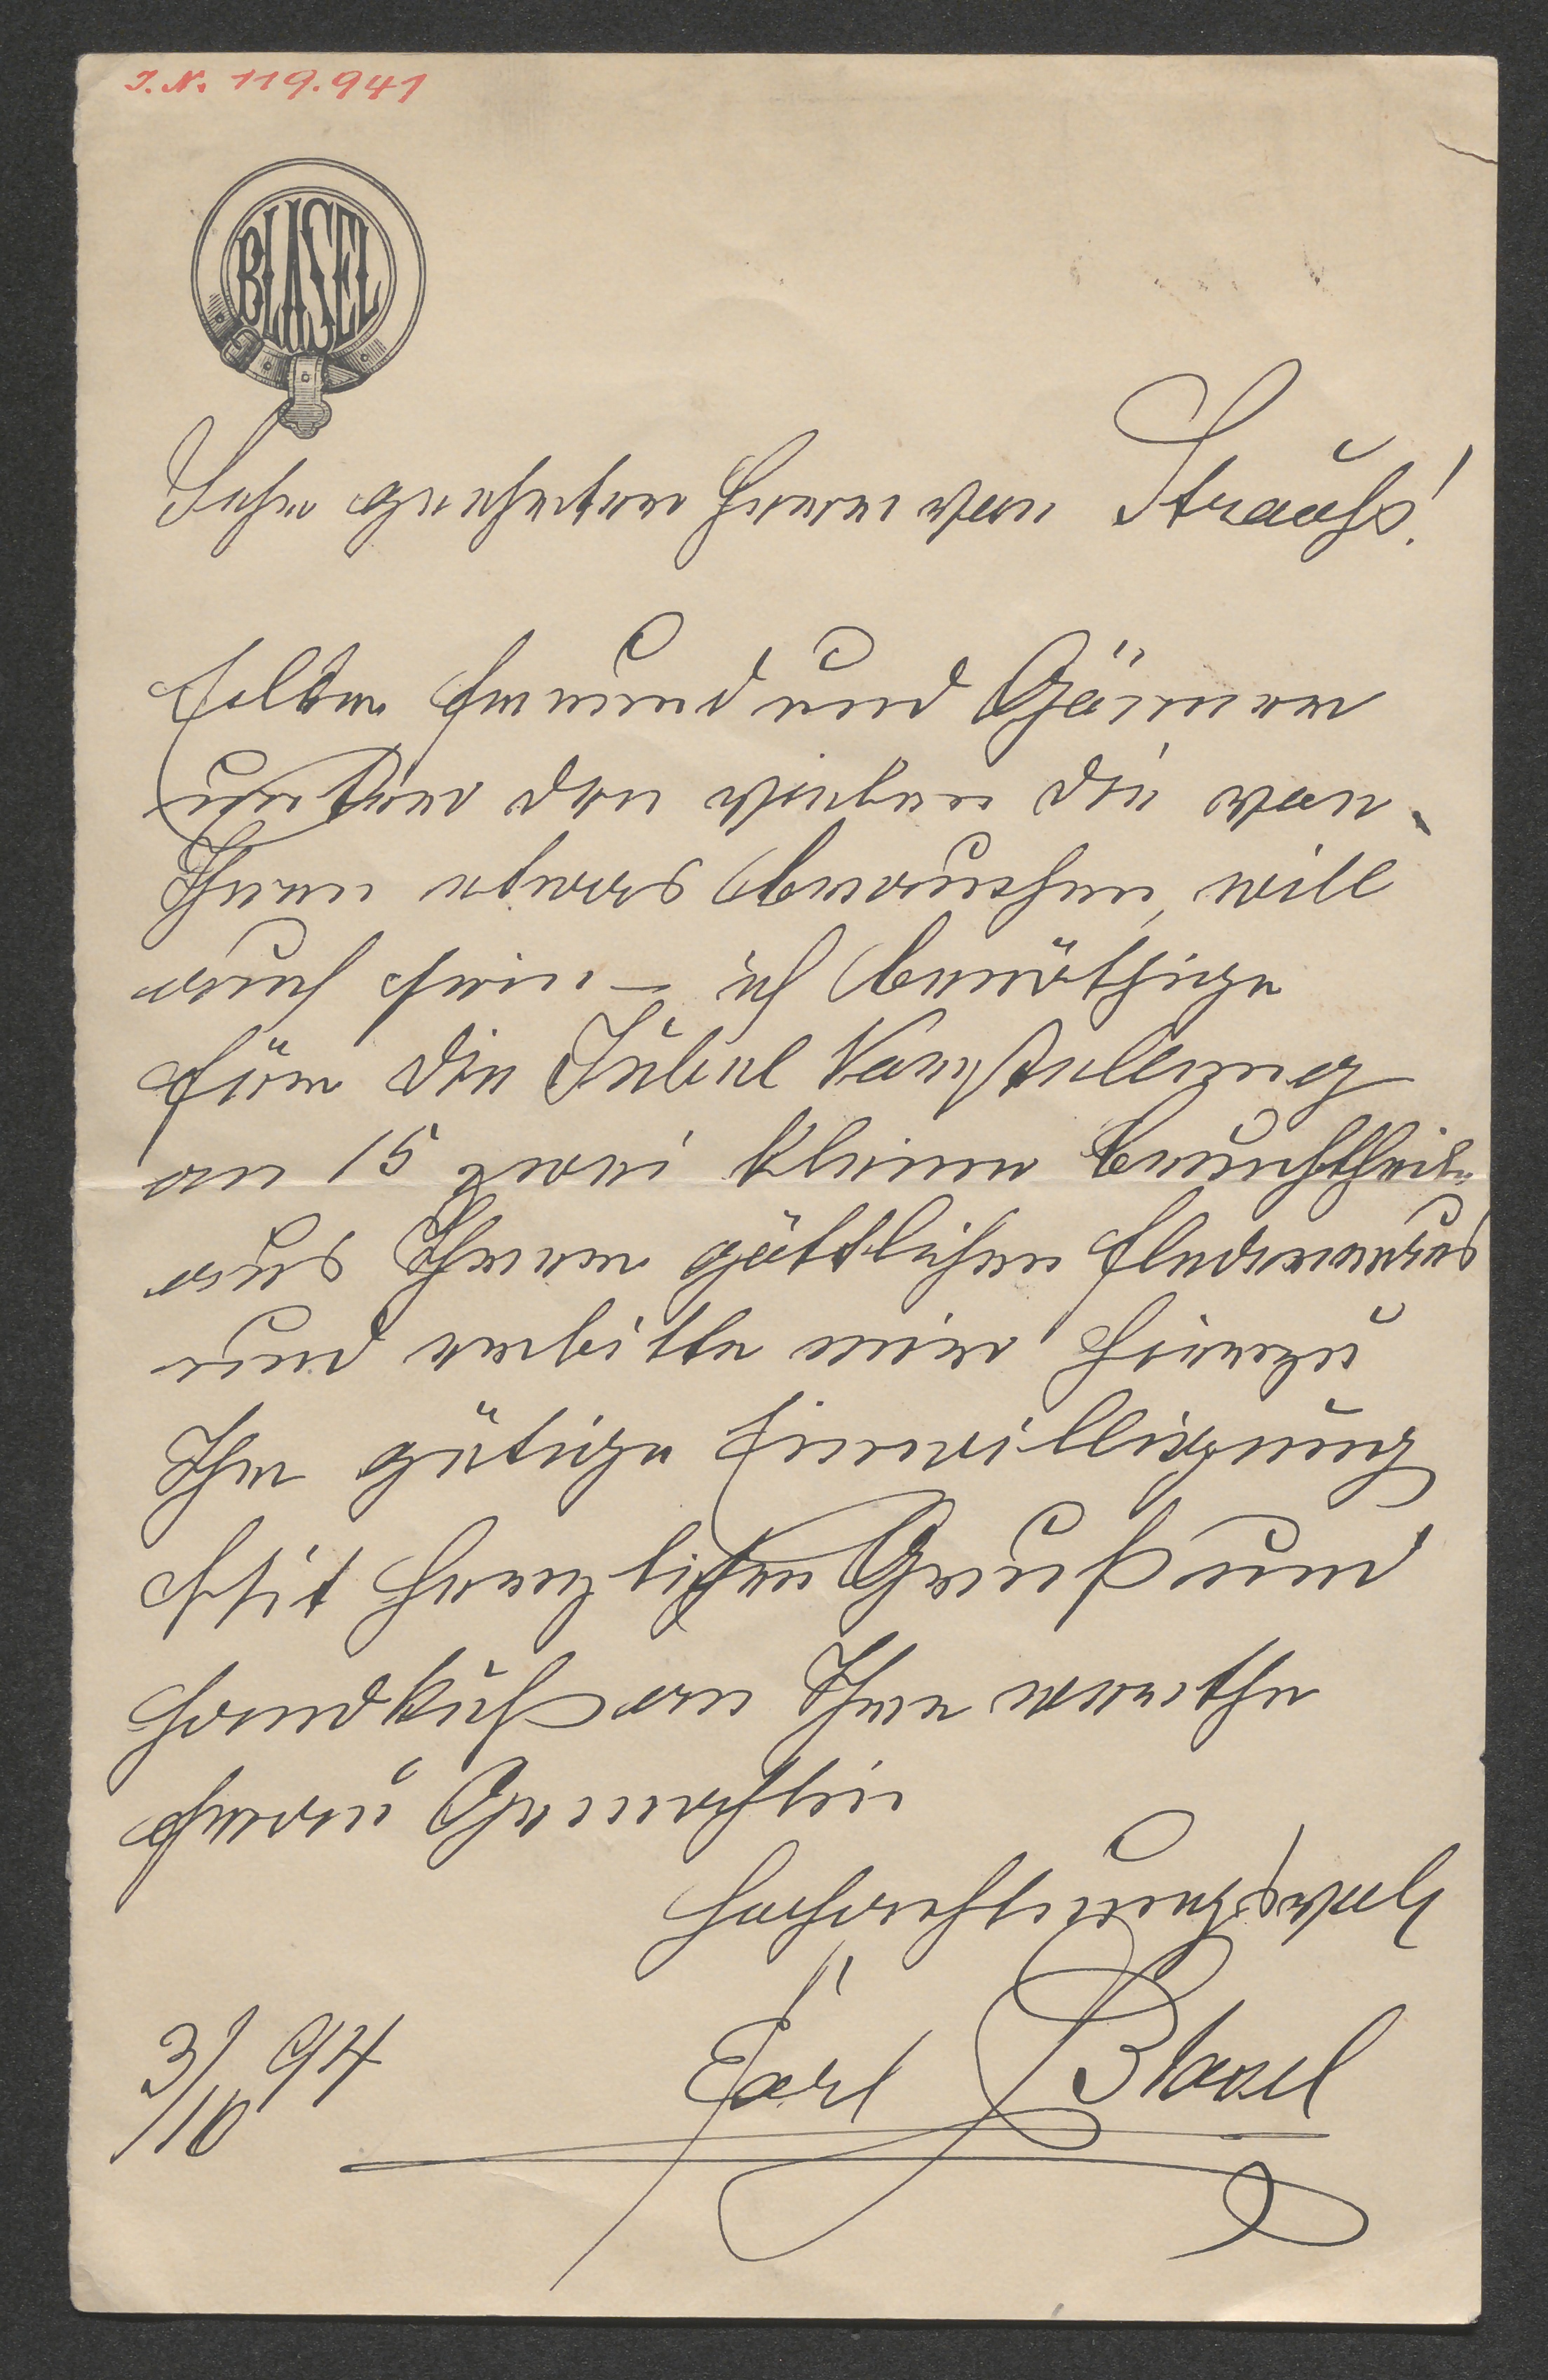 I. N. 119.941
BLASEL
Sehr geehrter Herr von Strauss!
Edler Freund und Gönner
unter den vielen die von
Ihnen etwas brauchen, will
auch sein – ich benöthige
für die Jubel Vorstellung
am 15 zwei kleine Bruchtheile
aus Ihrer göttlichen Fledermaus
und erbitte mir hiezu
Ihre gütige Einwilligung
Mit herzlichen Gruß und
Handkuß an Ihre werthe
Frau Gemahlin
Hochachtungsvoll
Carl Blasel
3/10 94